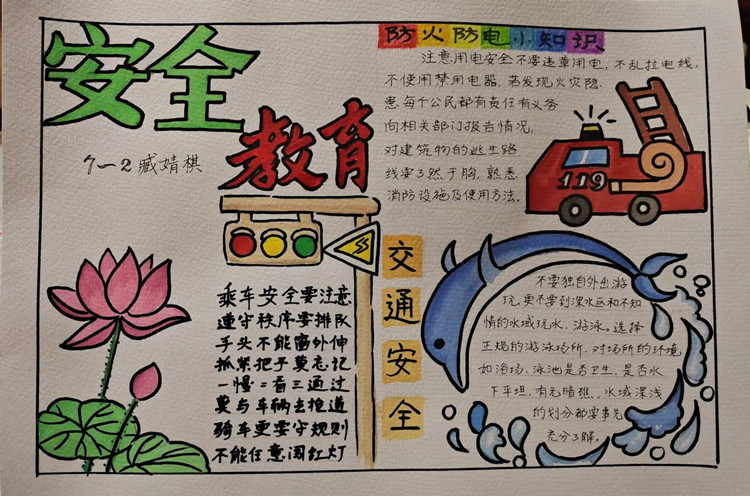 安全
教育
7-2 臧婧棋
防火防电小知识
注意用电安全不要违章用电，不乱拉电线，
不使用禁用电器，若发现火灾隐
患每个公民都有责任有义务
向相关部门报告情况，
对建筑物的逃生路
线要了然于胸，熟悉
消防设施及使用方法。
119
交通安全
乘车安全要注意
遵守秩序要排队
手头不能窗外伸
抓紧把手莫忘记
一慢二看三通过
莫与车辆去抢道
骑车更要守规则
不能任意闯红灯
不要独自外出游
玩，更不要到深水区和不知
情的水域玩水、游泳。选择
正规的游泳场所，对场所的环境
如浴场、泳池是否卫生，是否水
下平坦，有无暗礁，水域深浅
的划分都要事先
充分了解。